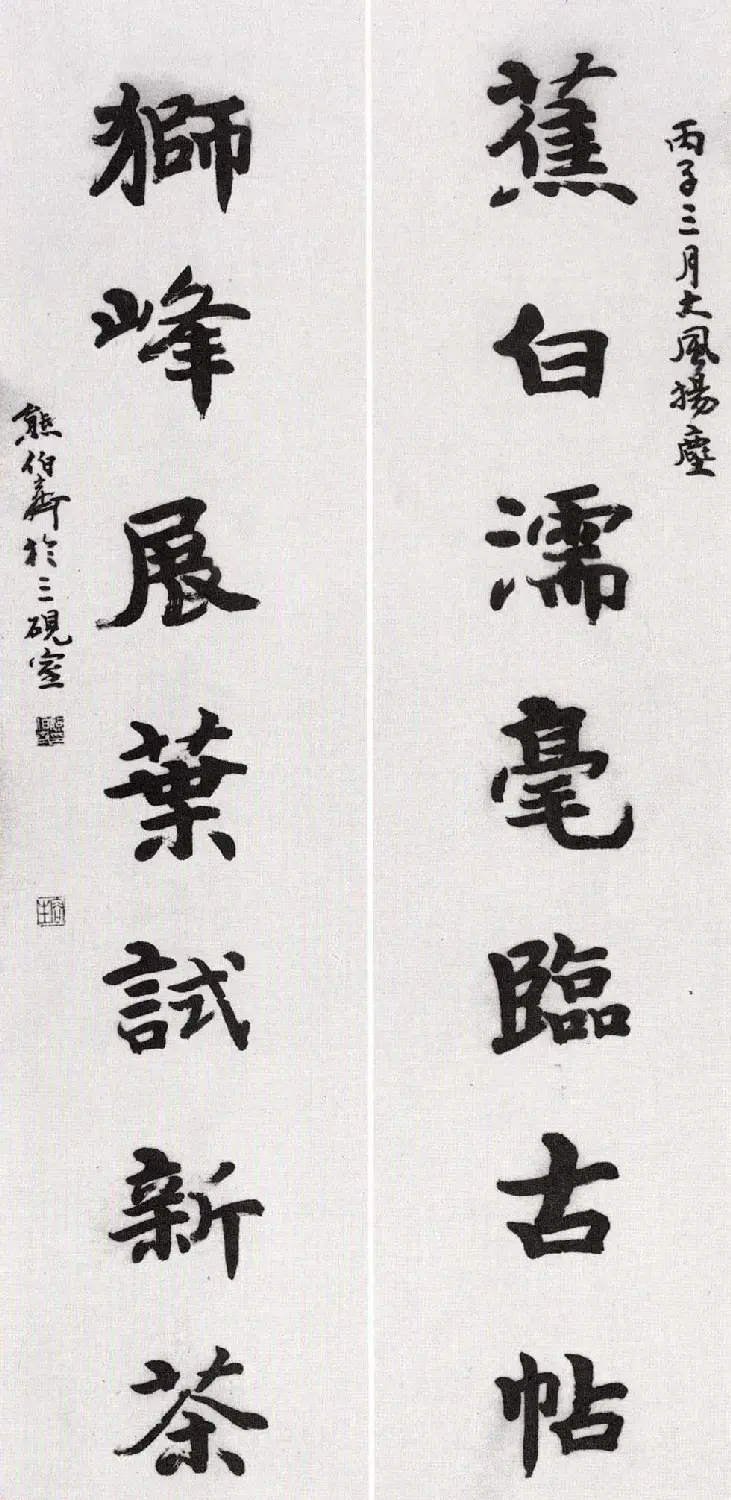 丙子三月大風揚塵
蕉白濡毫臨古帖
獅峰展葉試新茶
熊伯齊於三硯室